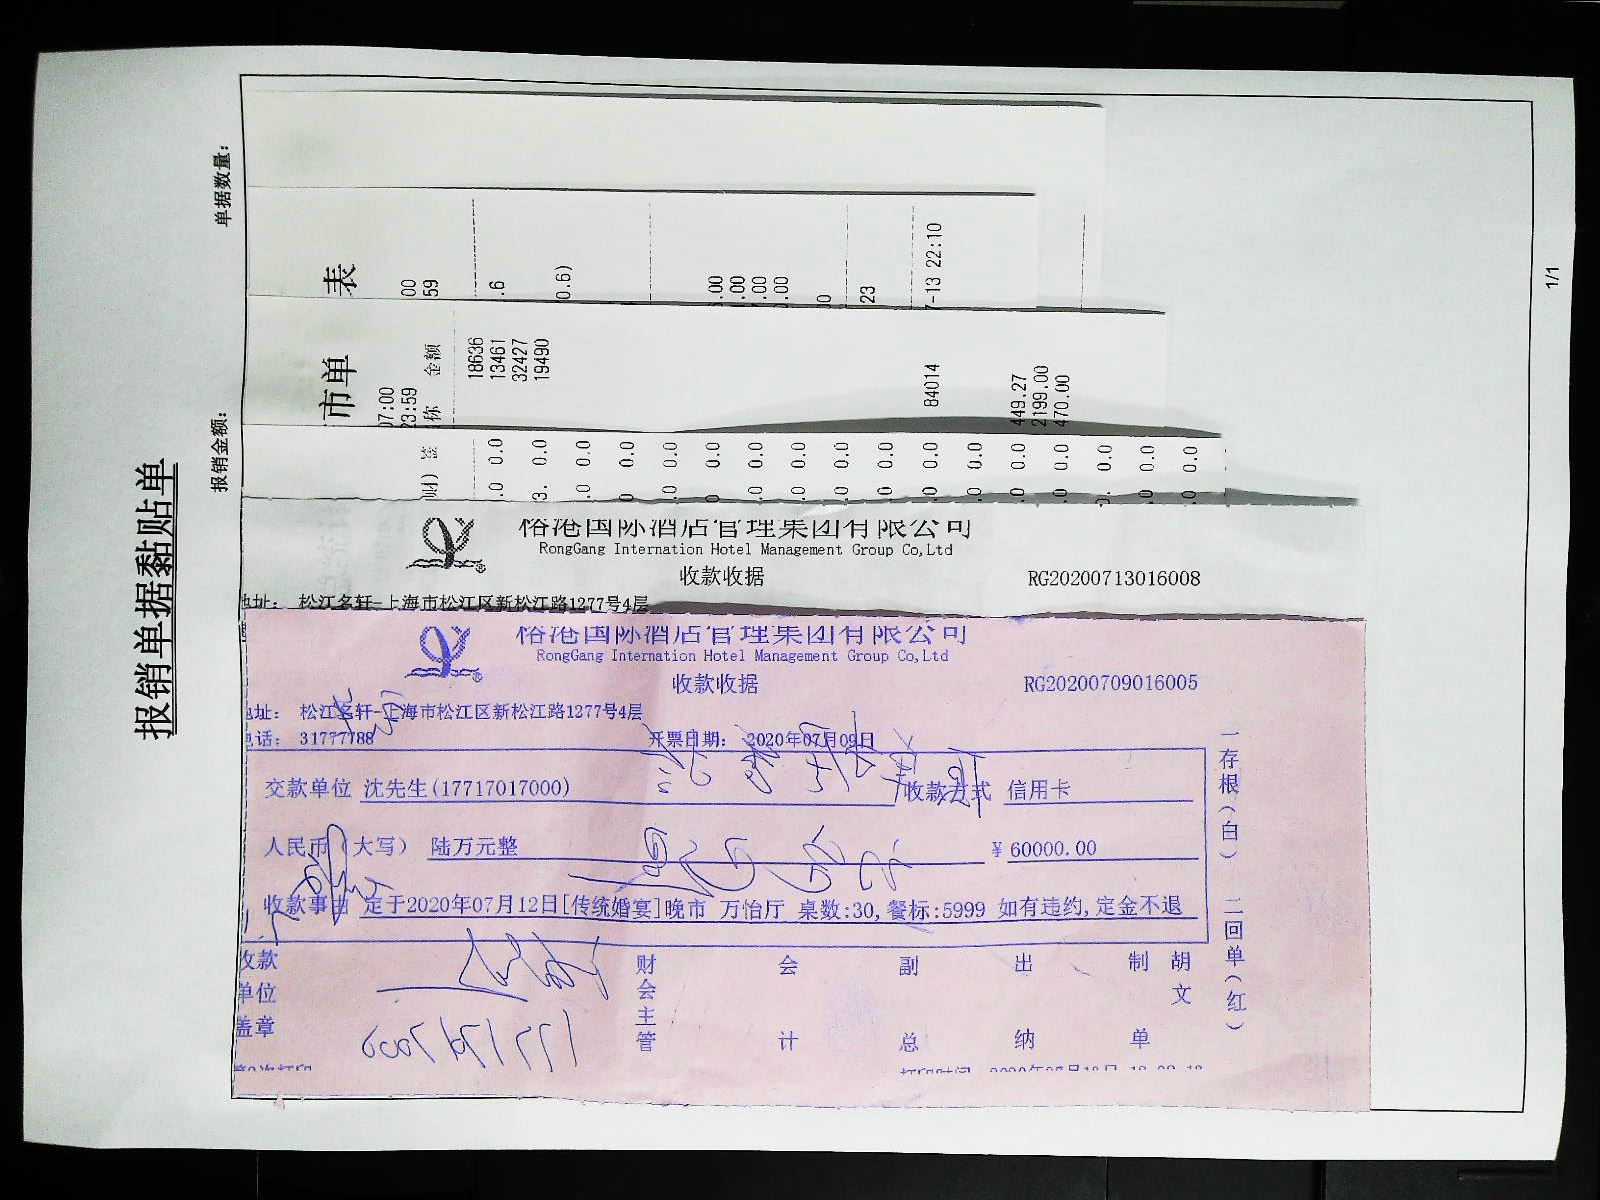 报销单据黏贴单
报销金额：
单据数量：
1/1
表
00
59
.6
0.6)
.00
.00
.00
.00
0
23
7-13 22:10
市单
07:00
23:59
称 金额
18636
13461
32427
19490
84014
449.27
2199.00
470.00
财) 签
.0 0.0
3. 0.0
.0 0.0
0 0.0
.0 0.0
0 0.0
.0 0.0
.0 0.0
.0 0.0
.0 0.0
.0 0.0
.0 0.0
.0 0.0
0. 0.0
.0 0.0
.0 0.0
榕港国际酒店管理集团有限公司
RongGang Internation Hotel Management Group Co,Ltd
收款收据
RG20200713016008
地址： 松江名轩-上海市松江区新松江路1277号4层
榕港国际酒店管理集团有限公司
RongGang Internation Hotel Management Group Co,Ltd
收款收据
RG20200709016005
地址： 松江名轩-上海市松江区新松江路1277号4层
电话： 31777788 开票日期： 2020年07月09日
交款单位 沈先生(17717017000) 收款方式 信用卡
人民币（大写） 陆万元整 ¥ 60000.00
收款事由 定于2020年07月12日[传统婚宴]晚市 万怡厅 桌数:30,餐标:5999 如有违约,定金不退
收款单位盖章
财会主管
会计
副总
出纳
制单
胡文
一存根（白） 二回单（红）